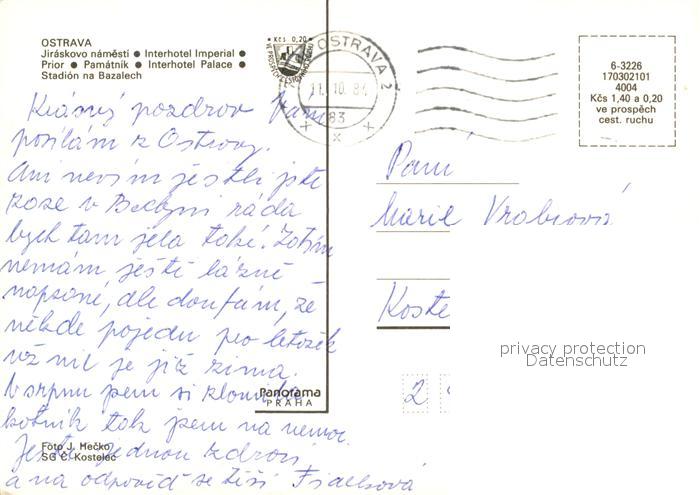 OSTRAVA
Jiráskovo náměstí ● Interhotel Imperial ●
Prior ● Památník ● Interhotel Palace ●
Stadión na Bazalech
Kčs 0,20
OSTRAVA 2
11.10.83
6-3226
170302101
4004
Kčs 1,40 a 0,20
ve prospěch
cest. ruchu
Krásný pozdrav Vám
posílám z Ostravy.
Ani nevím jestli jste
zase v Bechyni ráda
bych tam jela také. Zatím
nemám ještě lázně
napsané, ale doufám, že
někde pojedu pro letošek
už ne je již zima.
V srpnu jsem si
kotník tak jsem na nemoc.
Ještě jednou zdraví
a na odpověď se těší
Paní
Marie
Koste
2
Panorama
PRAHA
Foto J. Hečko
SG Č. Kostelec
privacy protection
Datenschutz